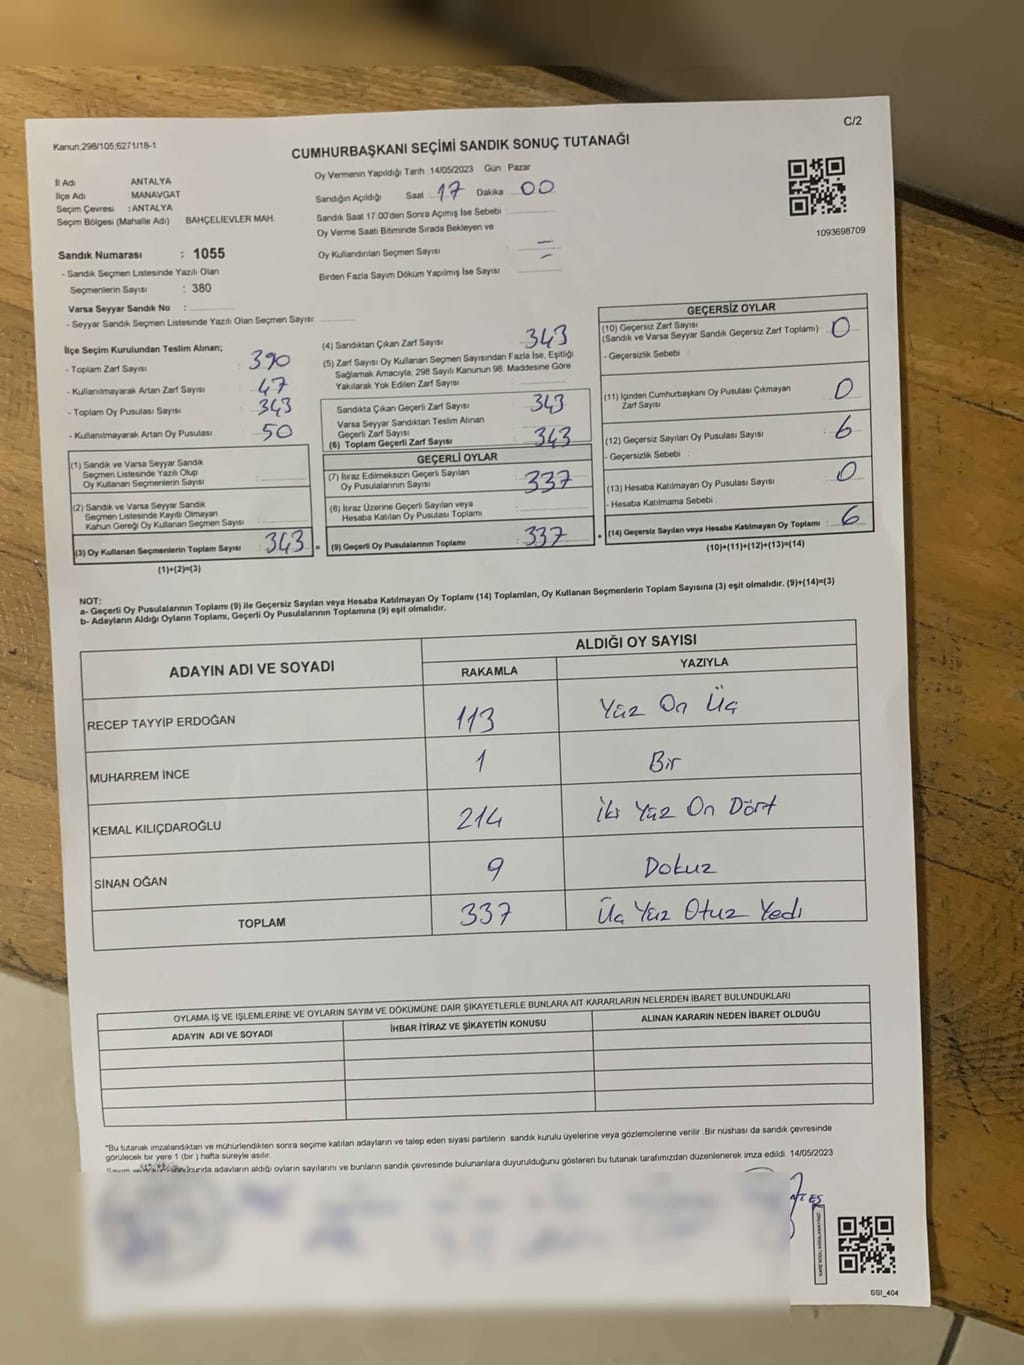 Kanun;298/105;6271/18-1
C/2
CUMHURBAŞKANI SEÇİMİ SANDIK SONUÇ TUTANAĞI
İl Adı ANTALYA
İlçe Adı MANAVGAT
Seçim Çevresi : ANTALYA
Seçim Bölgesi (Mahalle Adı) BAHÇELİEVLER MAH.
Sandık Numarası : 1055
- Sandık Seçmen Listesinde Yazılı Olan
Seçmenlerin Sayısı : 380
Varsa Seyyar Sandık No :
- Seyyar Sandık Seçmen Listesinde Yazılı Olan Seçmen Sayısı:
Oy Vermenin Yapıldığı Tarih 14/05/2023 Gün : Pazar
Sandığın Açıldığı Saat 17 Dakika 00
Sandık Saat 17.00'den Sonra Açımış İse Sebebi :
Oy Verme Saati Bitiminde Sırada Bekleyen ve
Oy Kullandırılan Seçmen Sayısı
Birden Fazla Sayım Döküm Yapılmış İse Sayısı :
1093698709
İlçe Seçim Kurulundan Teslim Alınan;
- Toplam Zarf Sayısı : 390
- Kullanılmayarak Artan Zarf Sayısı : 47
- Toplam Oy Pusulası Sayısı : 343
- Kullanılmayarak Artan Oy Pusulası : 50
(1) Sandık ve Varsa Seyyar Sandık
Seçmen Listesinde Yazılı Olup
Oy Kullanan Seçmenlerin Sayısı :
(2) Sandık ve Varsa Seyyar Sandık
Seçmen Listesinde Kayıtlı Olmayan
Kahun Gereği Oy Kullanan Seçmen Sayısı :
(3) Oy Kullanan Seçmenlerin Toplam Sayısı : 343 =
(1)+(2)=(3)
(4) Sandıktan Çıkan Zarf Sayısı : 343
(5) Zarf Sayısı Oy Kullanan Seçmen Sayısından Fazla İse, Eşitliği
Sağlamak Amacıyla, 298 Sayılı Kanunun 98. Maddesine Göre
Yakılarak Yok Edilen Zarf Sayısı :
Sandıkta Çıkan Geçerli Zarf Sayısı : 343
Varsa Seyyar Sandıktan Teslim Alınan
Geçerli Zarf Sayısı :
(6) Toplam Geçerli Zarf Sayısı : 343
GEÇERLİ OYLAR
(7) İtiraz Edilmeksizin Geçerli Sayılan
Oy Pusulalarının Sayısı : 337
(8) İtiraz Üzerine Geçerli Sayılan veya
Hesaba Katılan Oy Pusulası Toplamı :
(9) Geçerli Oy Pusulalarının Toplamı : 337 +
GEÇERSİZ OYLAR
(10) Geçersiz Zarf Sayısı
(Sandık ve Varsa Seyyar Sandık Geçersiz Zarf Toplamı) : 0
- Geçersizlik Sebebi :
(11) İçinden Cumhurbaşkanı Oy Pusulası Çıkmayan
Zarf Sayısı : 0
(12) Geçersiz Sayılan Oy Pusulası Sayısı : 6
- Geçersizlik Sebebi :
(13) Hesaba Katılmayan Oy Pusulası Sayısı : 0
- Hesaba Katılmama Sebebi :
(14) Geçersiz Sayılan veya Hesaba Katılmayan Oy Toplamı : 6
(10)+(11)+(12)+(13)=(14)
NOT:
a- Geçerli Oy Pusulalarının Toplamı (9) ile Geçersiz Sayılan veya Hesaba Katılmayan Oy Toplamı (14) Toplamları, Oy Kullanan Seçmenlerin Toplam Sayısına (3) eşit olmalıdır. (9)+(14)=(3)
b- Adayların Aldığı Oyların Toplamı, Geçerli Oy Pusulalarının Toplamına (9) eşit olmalıdır.
ADAYIN ADI VE SOYADI ALDIĞI OY SAYISI
RAKAMLA YAZIYLA
RECEP TAYYİP ERDOĞAN 113 Yüz On Üç
MUHARREM İNCE 1 Bir
KEMAL KILIÇDAROĞLU 214 İki Yüz On Dört
SİNAN OĞAN 9 Dokuz
TOPLAM 337 Üç Yüz Otuz Yedi
OYLAMA İŞ VE İŞLEMLERİNE VE OYLARIN SAYIM VE DÖKÜMÜNE DAİR ŞİKAYETLERLE BUNLARA AİT KARARLARIN NELERDEN İBARET BULUNDUKLARI
ADAYIN ADI VE SOYADI İHBAR İTİRAZ VE ŞİKAYETİN KONUSU ALINAN KARARIN NEDEN İBARET OLDUĞU
*Bu tutanak imzalandıktan ve mühürlendikten sonra seçime katılan adayların ve talep eden siyasi partilerin sandık kurulu üyelerine veya gözlemcilerine verilir .Bir nüshası da sandık çevresinde
görülecek bir yere 1 (bir ) hafta süreyle asılır.
adayların aldığı oyların sayılarını ve bunların sandık çevresinde bulunanlara duyurulduğunu gösteren bu tutanak tarafımızdan düzenlenerek imza edildi. 14/05/2023
SSI_404